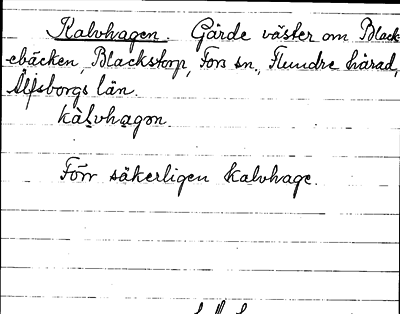 Kalvhagen. Gärde väster om Black-
ebäcken, Blackstorp, Fors sn., Flundre härad,
Älfsborgs län.
kàlvhagən.
Förr säkerligen kalvhage.